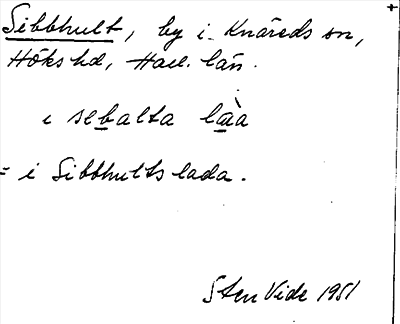 Sibbhult, by i Knäreds sn,
Höks hd, Hall. län.
i sebalta laà
= i Sibbhults lada.
Sten Vide 1951